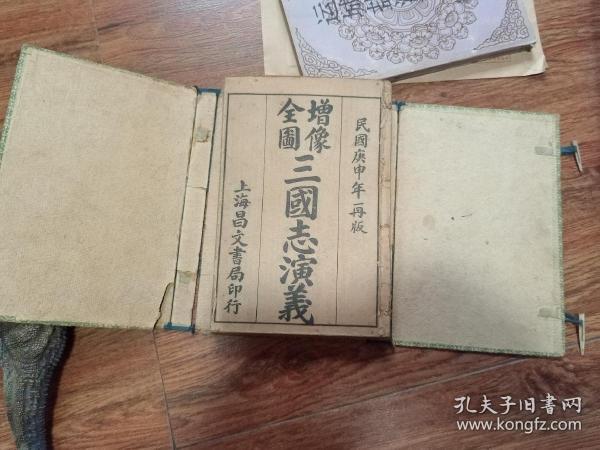 民國庚申年再版
增像
全圖
三國志演義
上海昌文書局印行
孔夫子旧书网
www.kongfz.com